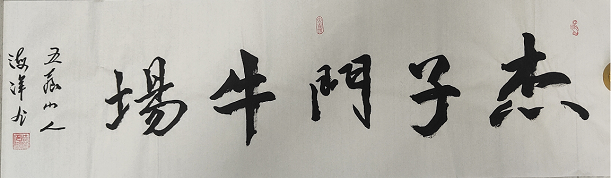 杰子鬥牛場
山人
海洋书